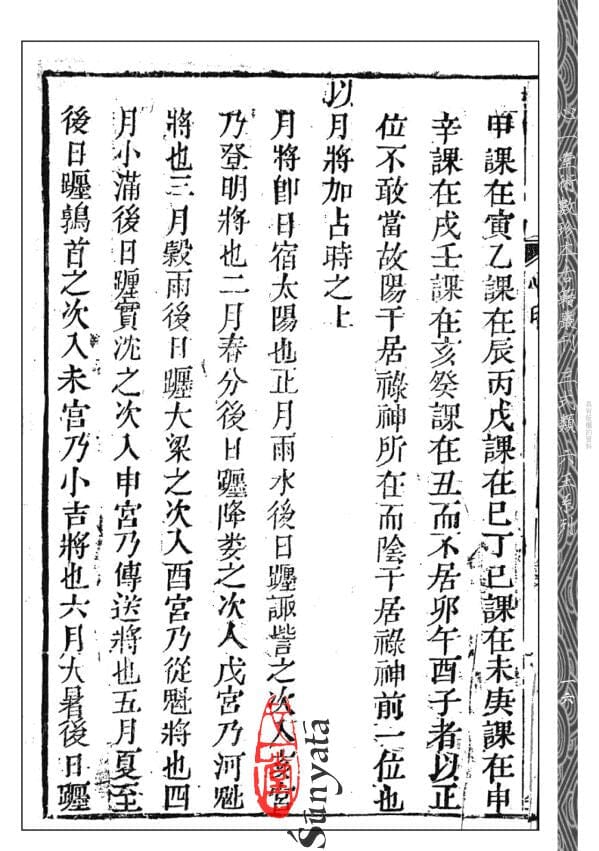 甲課在寅乙課在辰丙戊課在巳丁巳課在未庚課在申
辛課在戌壬課在亥癸課在丑而不居卯午酉子者以正
位不敢當故陽干居祿神所在而陰干居祿神前一位也
以月將加占時之上
月將卽日宿太陽也正月雨水後日躔諏訾之次入亥宮
乃登明將也二月春分後日躔降婁之次入戌宮乃河魁
將也三月穀雨後日躔大梁之次入酉宮乃從魁將也四
月小滿後日躔實沈之次入申宮乃傳送將也五月夏至
後日躔鶉首之次入未宮乃小吉將也六月大暑後日躔
心一堂術數珍本古籍叢刊 三式類 六壬系列
一六
Śūnyata